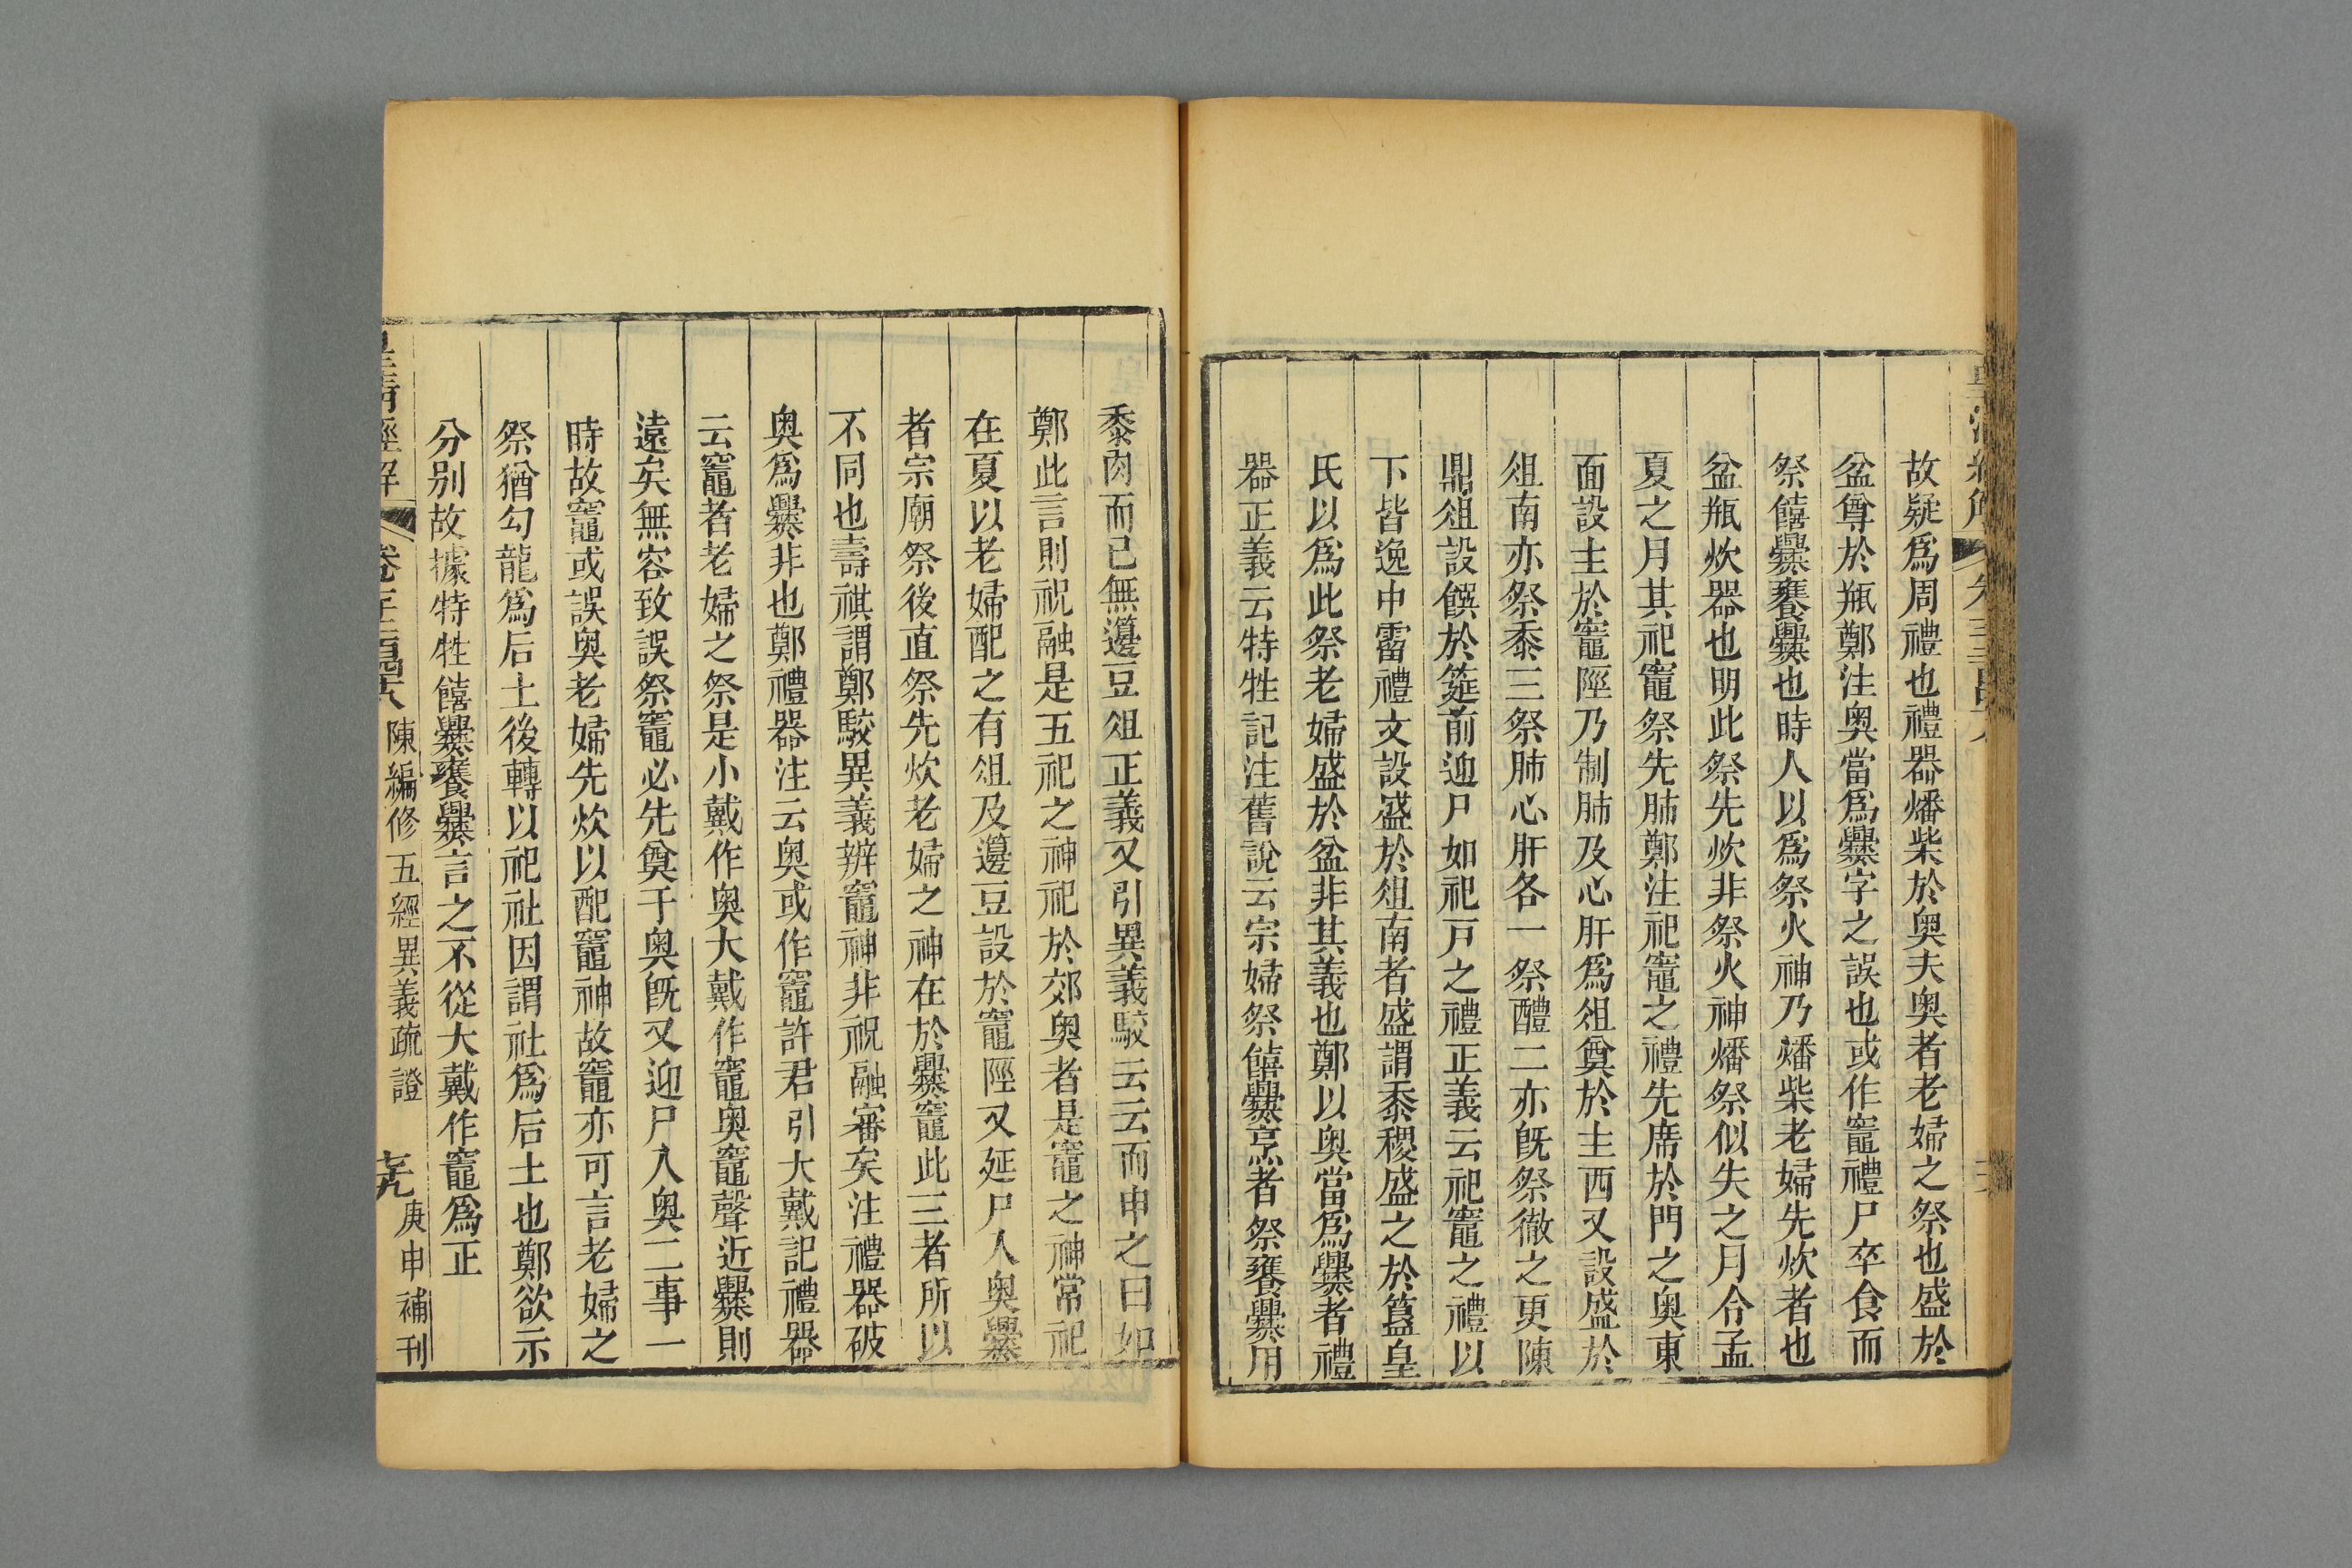 故疑爲周禮也禮器燔柴於奥夫奥者老婦之祭也盛於
盆尊於瓶鄭注奥當爲爨字之誤也或作竈禮尸卒食而
祭饎爨饔爨也時人以爲祭火神乃燔柴老婦先炊者也
盆瓶炊器也明此祭先炊非祭火神燔祭似失之月令孟
夏之月其祀竈祭先肺鄭注祀竈之禮先席於門之奥東
面設主於竈陘乃制肺及心肝爲俎奠於主西又設盛於
俎南亦祭黍三祭肺心肝各一祭醴二亦旣祭徹之更陳
鼎俎設饌於筵前迎尸如祀戸之禮正義云祀竈之禮以
下皆逸中霤禮文設盛於俎南者盛謂黍稷盛之於簋皇
氏以爲此祭老婦盛於盆非其義也鄭以奥當爲爨者禮
器正義云特牲記注舊說云宗婦祭饎爨烹者祭饔爨用
黍肉而已無籩豆俎正義又引異義駮云云而申之曰如
鄭此言則祝融是五祀之神祀於郊奥者是竈之神常祀
在夏以老婦配之有俎及籩豆設於竈陘又延尸入奥爨
者宗廟祭後直祭先炊老婦之神在於爨竈此三者所以
不同也壽祺謂鄭駮異義辨竈神非祝融審矣注禮器破
奥爲爨非也鄭禮器注云奥或作竈許君引大戴記禮器
云竈者老婦之祭是小戴作奥大戴作竈奥竈聲近爨則
遠矣無容致誤祭竈必先奠于奥旣又迎尸入奥二事一
時故竈或誤奥老婦先炊以配竈神故竈亦可言老婦之
祭猶勾龍爲后土後轉以祀社因謂社爲后土也鄭欲示
分別故據特牲饎爨饔爨言之不從大戴作竈爲正
皇清經解 卷千二百四十八 陳編修五經異義疏證 庚申補刊